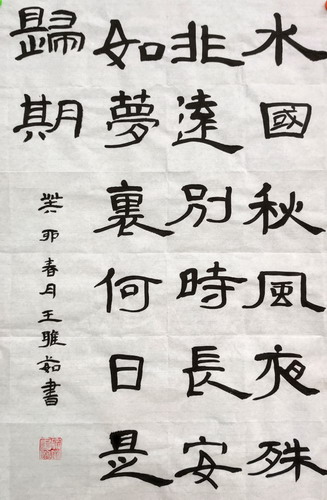 水國秋風夜殊
非遠別時長安
如夢裏何日是
歸期
癸卯春月王雅茹書